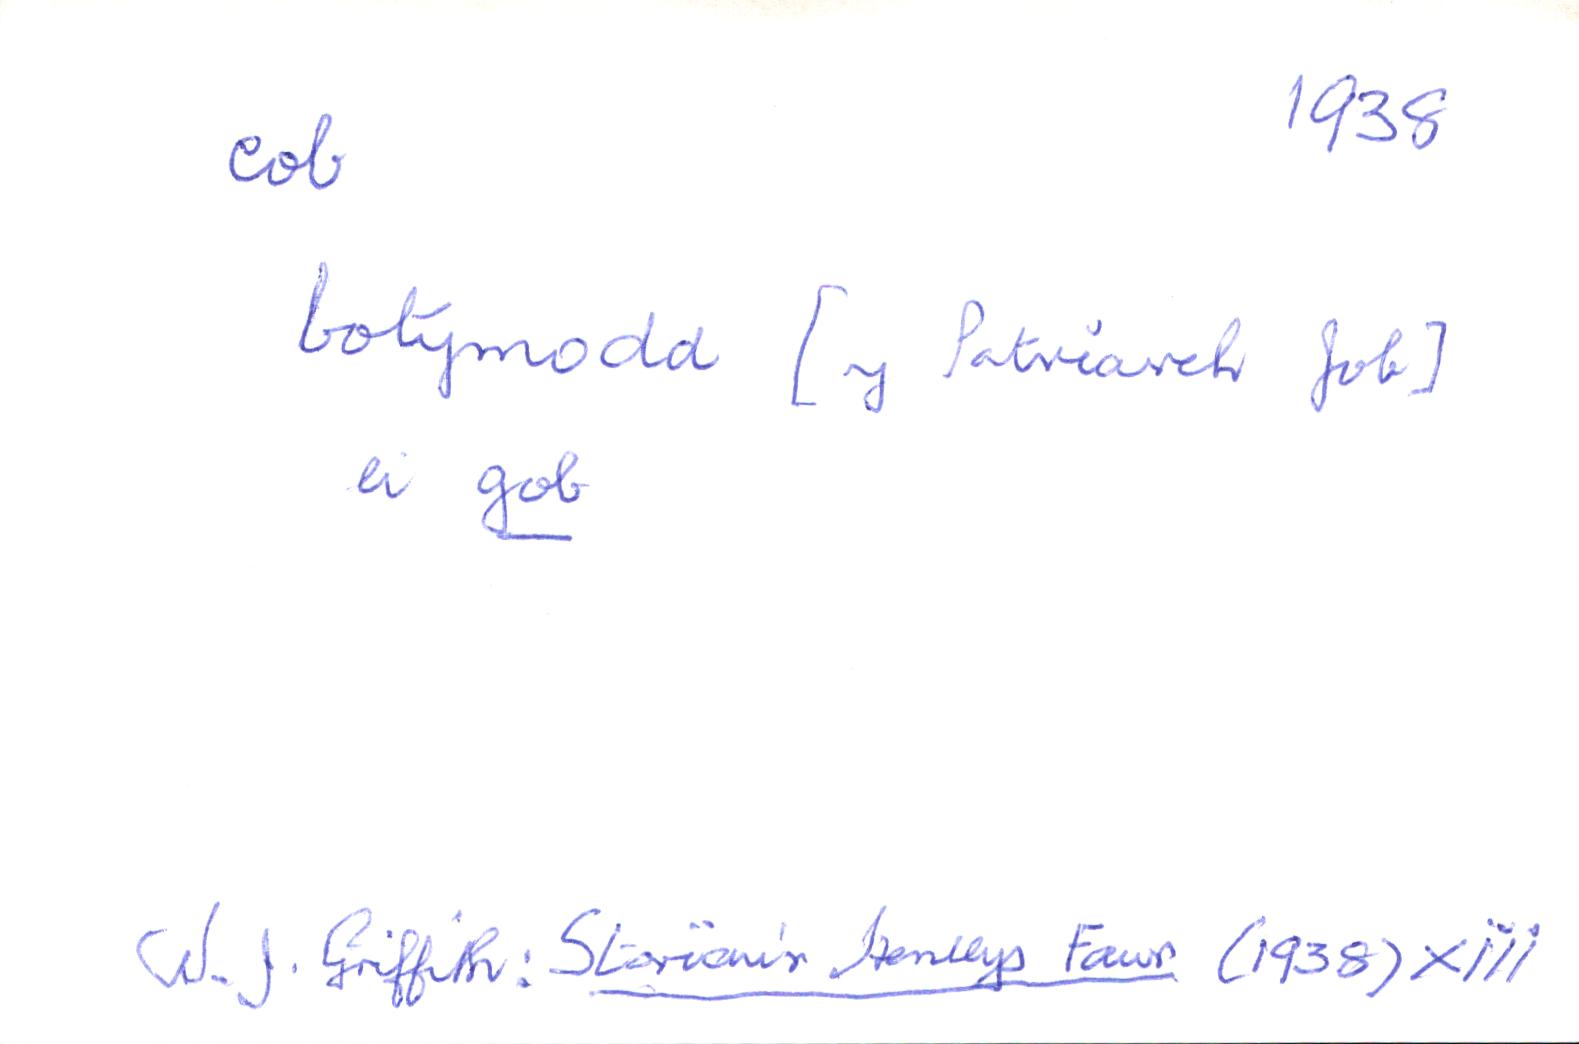 1938
cob
botymodd [y Patriarch Job]
ei gob
W. J. Griffith: Storïau'r Henllys Fawr (1938) xiii